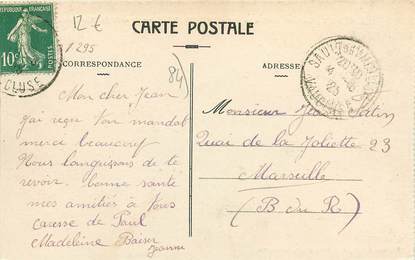 RÉPUBLIQUE FRANÇAISE
10c POSTES
CLUSE
12 €
/ 295
CARTE POSTALE
CORRESPONDANCE
ADRESSE
SAULT
VAUCLUSE
23
84)
Mon cher Jean
J'ai reçu Ton mandat
merci beaucouf
Nous languissons de te
revoir. Bonne santé
mes amitiés à Tous
caresse de Paul
Madeleine Baiser
Jeanne
Monsieur Jean
Quai de la Joliette 23
Marseille
(B. du R)